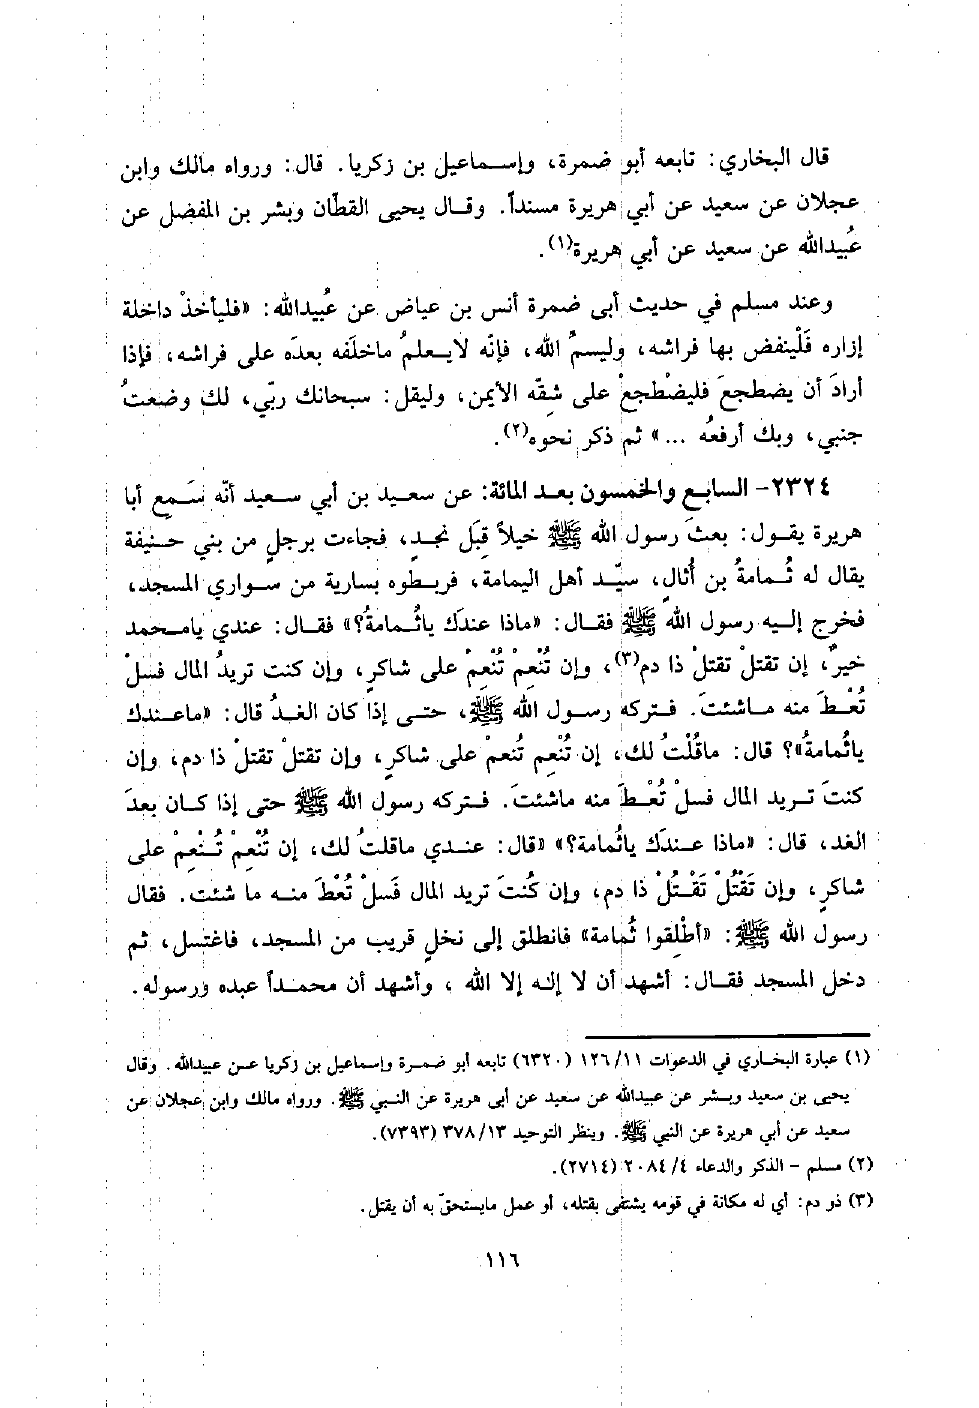 قال البخاري: تابعه أبو ضمرة، وإسماعيل بن زكريا. قال: ورواه مالك وابن
عجلان عن سعيد عن أبي هريرة مسنداً. وقال يحيى القطّان وبشر بن المفضل عن
عُبيدالله عن سعيد عن أبي هريرة(١).
وعند مسلم في حديث أبى ضمرة أنس بن عياض عن عُبيدالله: «فليأخذْ داخلة
إزاره فَلْينفض بها فراشه، وليسمِّ الله، فإنّه لايعلمُ ماخلَفه بعدَه على فراشه، فإذا
أرادَ أن يضطجعَ فليضْطجعْ على شقّه الأيمن، وليقل: سبحانك ربّي، لك وضعتُ
جنبي، وبك أرفعُه ...» ثم ذكر نحوه(٢).
٢٣٢٤- السابع والخمسون بعد المائة: عن سعيد بن أبي سعيد أنّه سَمع أبا
هريرة يقول: بعثَ رسول الله ﷺ خيلاً قِبَل نجدٍ، فجاءت برجلٍ من بني حنيفة
يقال له ثُمامةُ بن أُثال، سيّد أهل اليمامة، فربطوه بسارية من سواري المسجد،
فخرج إليه رسول الله ﷺ فقال: «ماذا عندَك ياثُمامةُ؟» فقال: عندي يامحمد
خيرٌ، إن تقتلْ تقتلْ ذا دم(٣)، وإن تُنْعِمْ تُنْعِمْ على شاكرٍ، وإن كنت تريدُ المال فسلْ
تُعْطَ منه ماشئتَ. فتركه رسول الله ﷺ، حتى إذا كان الغدُ قال: «ماعندك
ياثُمامةُ»؟ قال: ماقُلْتُ لك، إن تُنْعِم تُنعمْ على شاكرٍ، وإن تقتلْ تقتلْ ذا دم، وإن
كنتَ تريد المال فسلْ تُعْطَ منه ماشئتَ. فتركه رسول الله ﷺ حتى إذا كان بعدَ
الغد، قال: «ماذا عندَك ياثُمامة؟» قال: عندي ماقلتُ لك، إن تُنْعِمْ تُنْعِمْ على
شاكرٍ، وإن تَقْتُلْ تَقْتُلْ ذا دم، وإن كُنتَ تريد المال فَسلْ تُعْطَ منه ما شئت. فقال
رسول الله ﷺ: «أطْلِقوا ثُمامة» فانطلق إلى نخلٍ قريب من المسجد، فاغتسل، ثم
دخل المسجد فقال: أشهد أن لا إله إلا الله ، وأشهد أن محمداً عبده ورسوله.
(١) عبارة البخاري في الدعوات ١٢٦/١١ (٦٣٢٠) تابعه أبو ضمرة وإسماعيل بن زكريا عن عبيدالله. وقال
يحيى بن سعيد وبشر عن عبيدالله عن سعيد عن أبى هريرة عن النبي ﷺ. ورواه مالك وابن عجلان عن
سعيد عن أبي هريرة عن النبي ﷺ. وينظر التوحيد ٣٧٨/١٣ (٧٣٩٣).
(٢) مسلم - الذكر والدعاء ٢٠٨٤/٤ (٢٧١٤).
(٣) ذو دم: أي له مكانة في قومه يشتفى بقتله، أو عمل مايستحقّ به أن يقتل.
١١٦